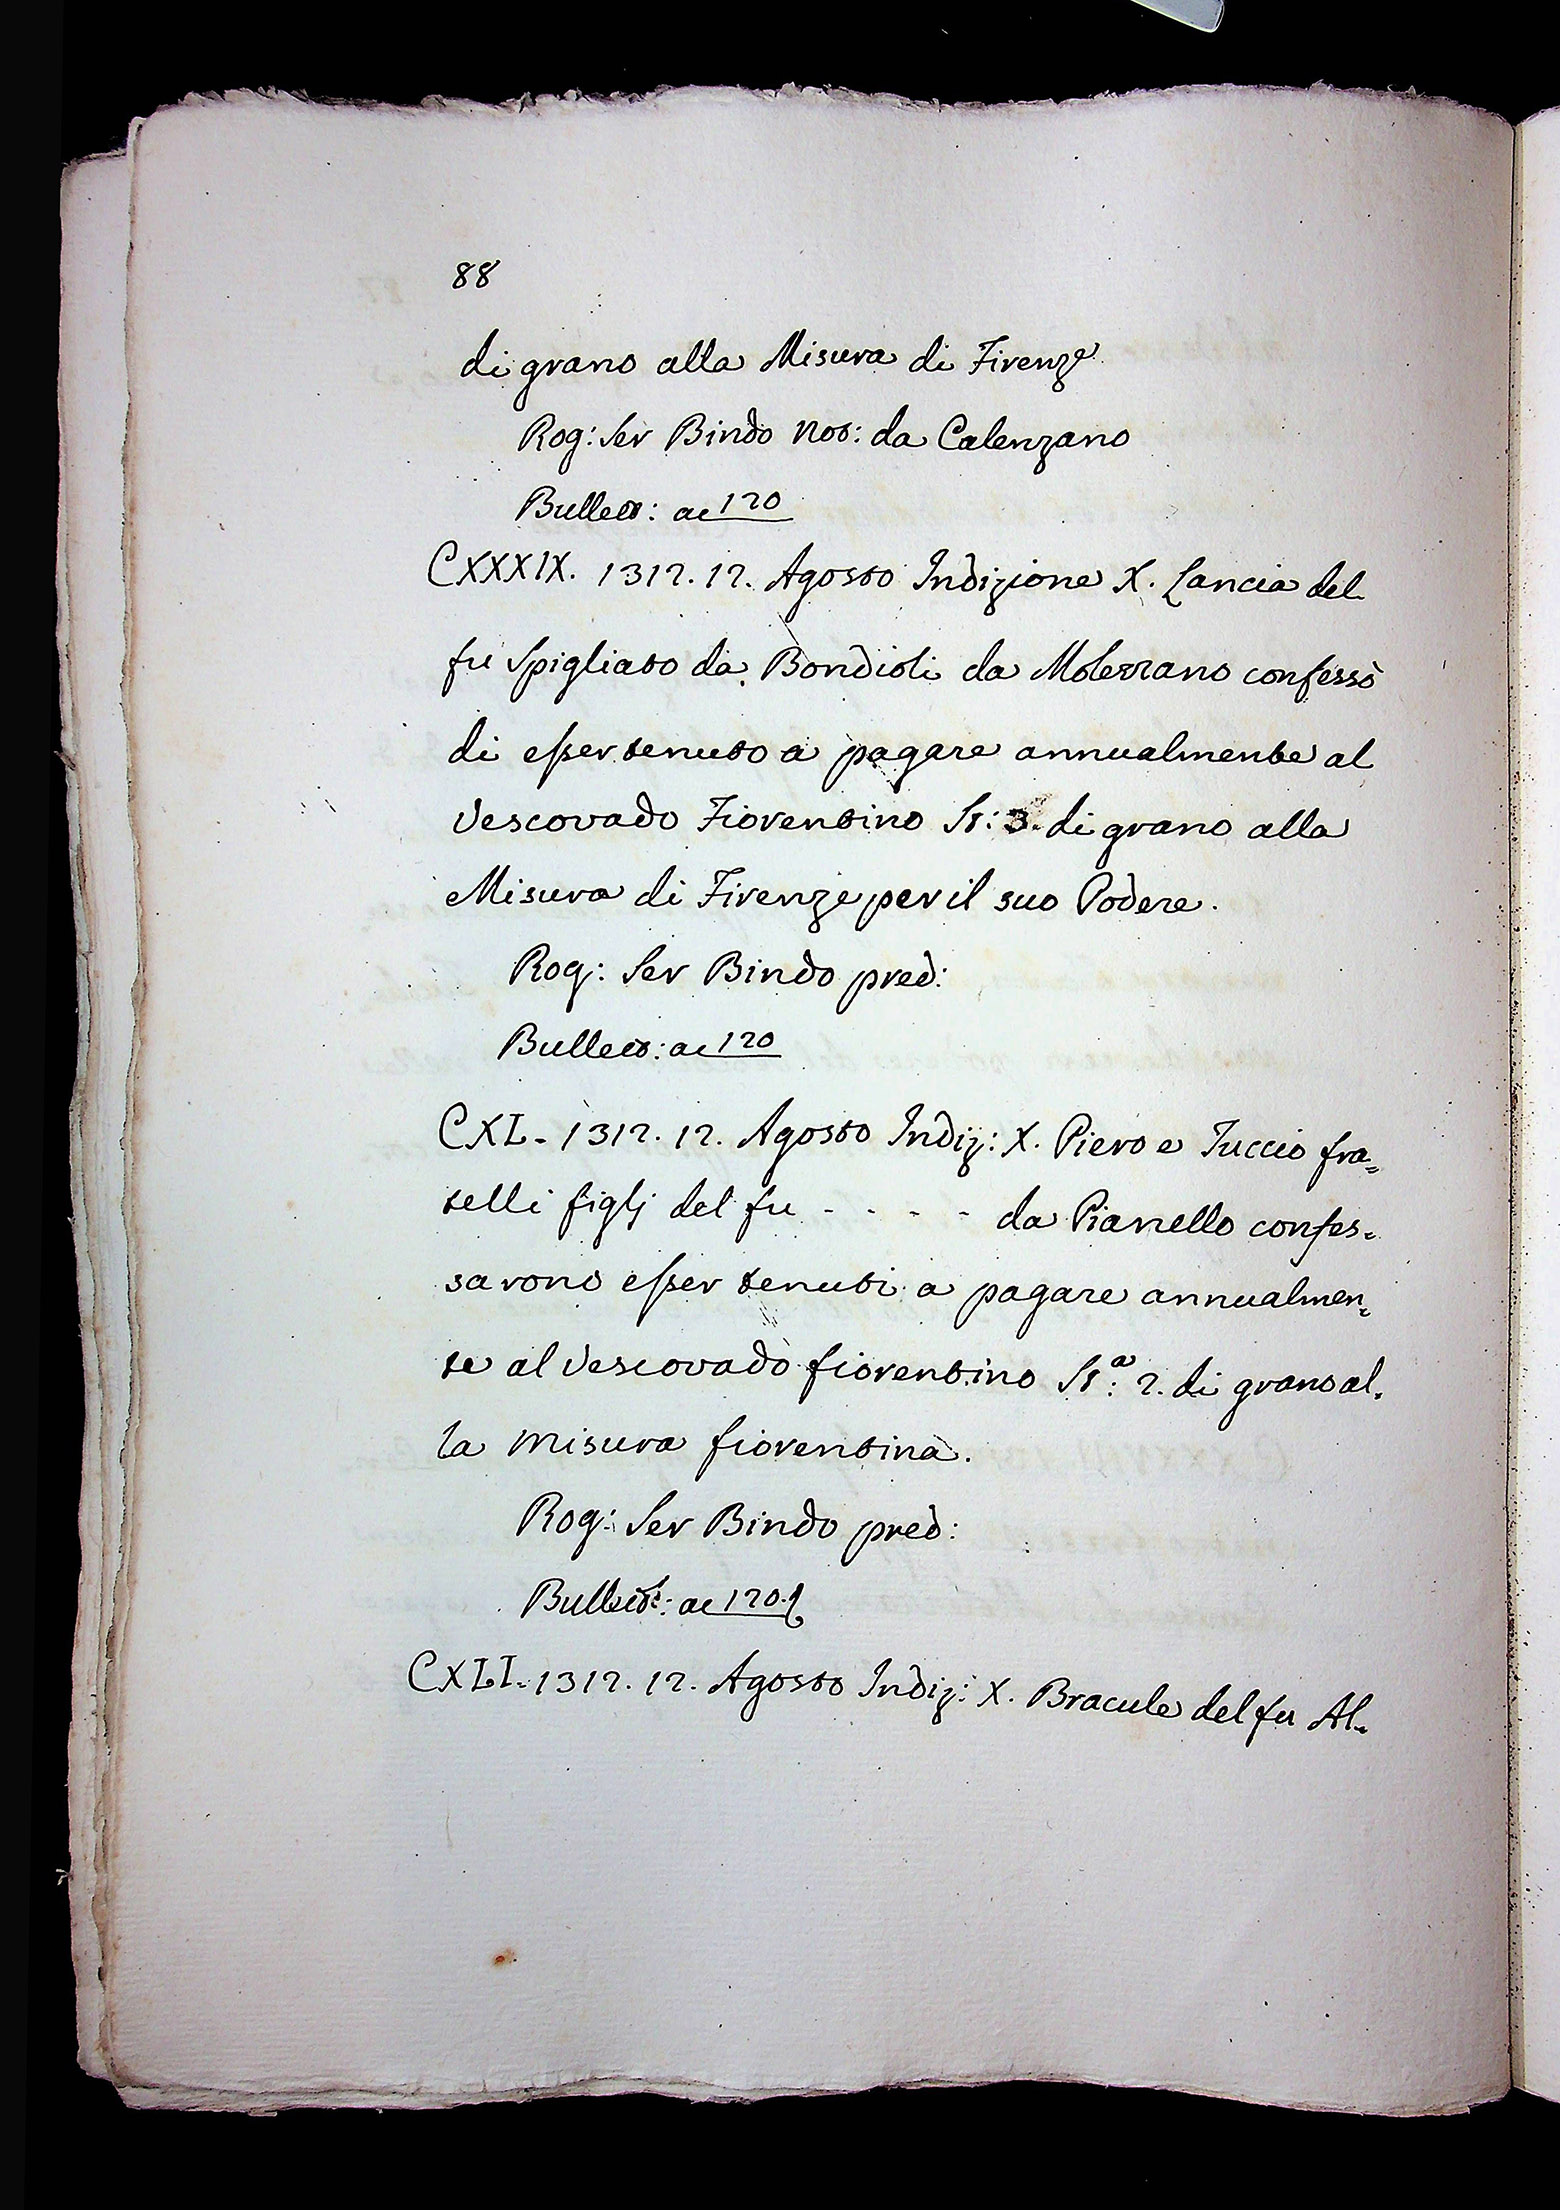 88
di grano alla Misura di Firenze
Rog: Ser Bindo Not: da Calenzano
Bullett: a c 120
CXXXIX. 1312. 12. Agosto Indizione X. Lancia del
fu Spigliato da Bondioli da Molezzano confessò
di esser tenuto a pagare annualmente al
Vescovado Fiorentino St: 3. di grano alla
Misura di Firenze per il suo Podere.
Rog: Ser Bindo pred:
Bullett: a c 120
CXL. 1312. 12. Agosto Indiz: X. Piero e Tuccio fra=
telli figlj del fu - - - - da Pianello confes=
sarono esser tenuti a pagare annualmen=
te al Vescovado fiorentino St:ª 2. di grano al=
la misura fiorentina.
Rog: Ser Bindo pred:
a c 120.
CXLI. 1312. 12. Agosto Indiz: X. Bracule del fu Al=